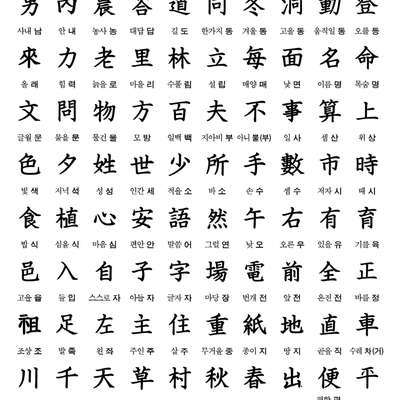 男 內 農 答 道 同 冬 洞 動 登
사내 남 안 내 농사 농 대답 답 길 도 한가지 동 겨울 동 고을 동 움직일 동 오를 등
來 力 老 里 林 立 每 面 名 命
올 래 힘 력 늙을 로 마을 리 수풀 림 설 립 매양 매 낯 면 이름 명 목숨 명
文 問 物 方 百 夫 不 事 算 上
글월 문 물을 문 물건 물 모 방 일백 백 지아비 부 아니 불(부) 일 사 셈 산 위 상
色 夕 姓 世 少 所 手 數 市 時
빛 색 저녁 석 성 성 인간 세 적을 소 바 소 손 수 셈 수 저자 시 때 시
食 植 心 安 語 然 午 右 有 育
밥 식 심을 식 마음 심 편안 안 말씀 어 그럴 연 낮 오 오른 우 있을 유 기를 육
邑 入 自 子 字 場 電 前 全 正
고을 읍 들 입 스스로 자 아들 자 글자 자 마당 장 번개 전 앞 전 온전 전 바를 정
祖 足 左 主 住 重 紙 地 直 車
조상 조 발 족 왼 좌 주인 주 살 주 무거울 중 종이 지 땅 지 곧을 직 수레 차(거)
川 千 天 草 村 秋 春 出 便 平